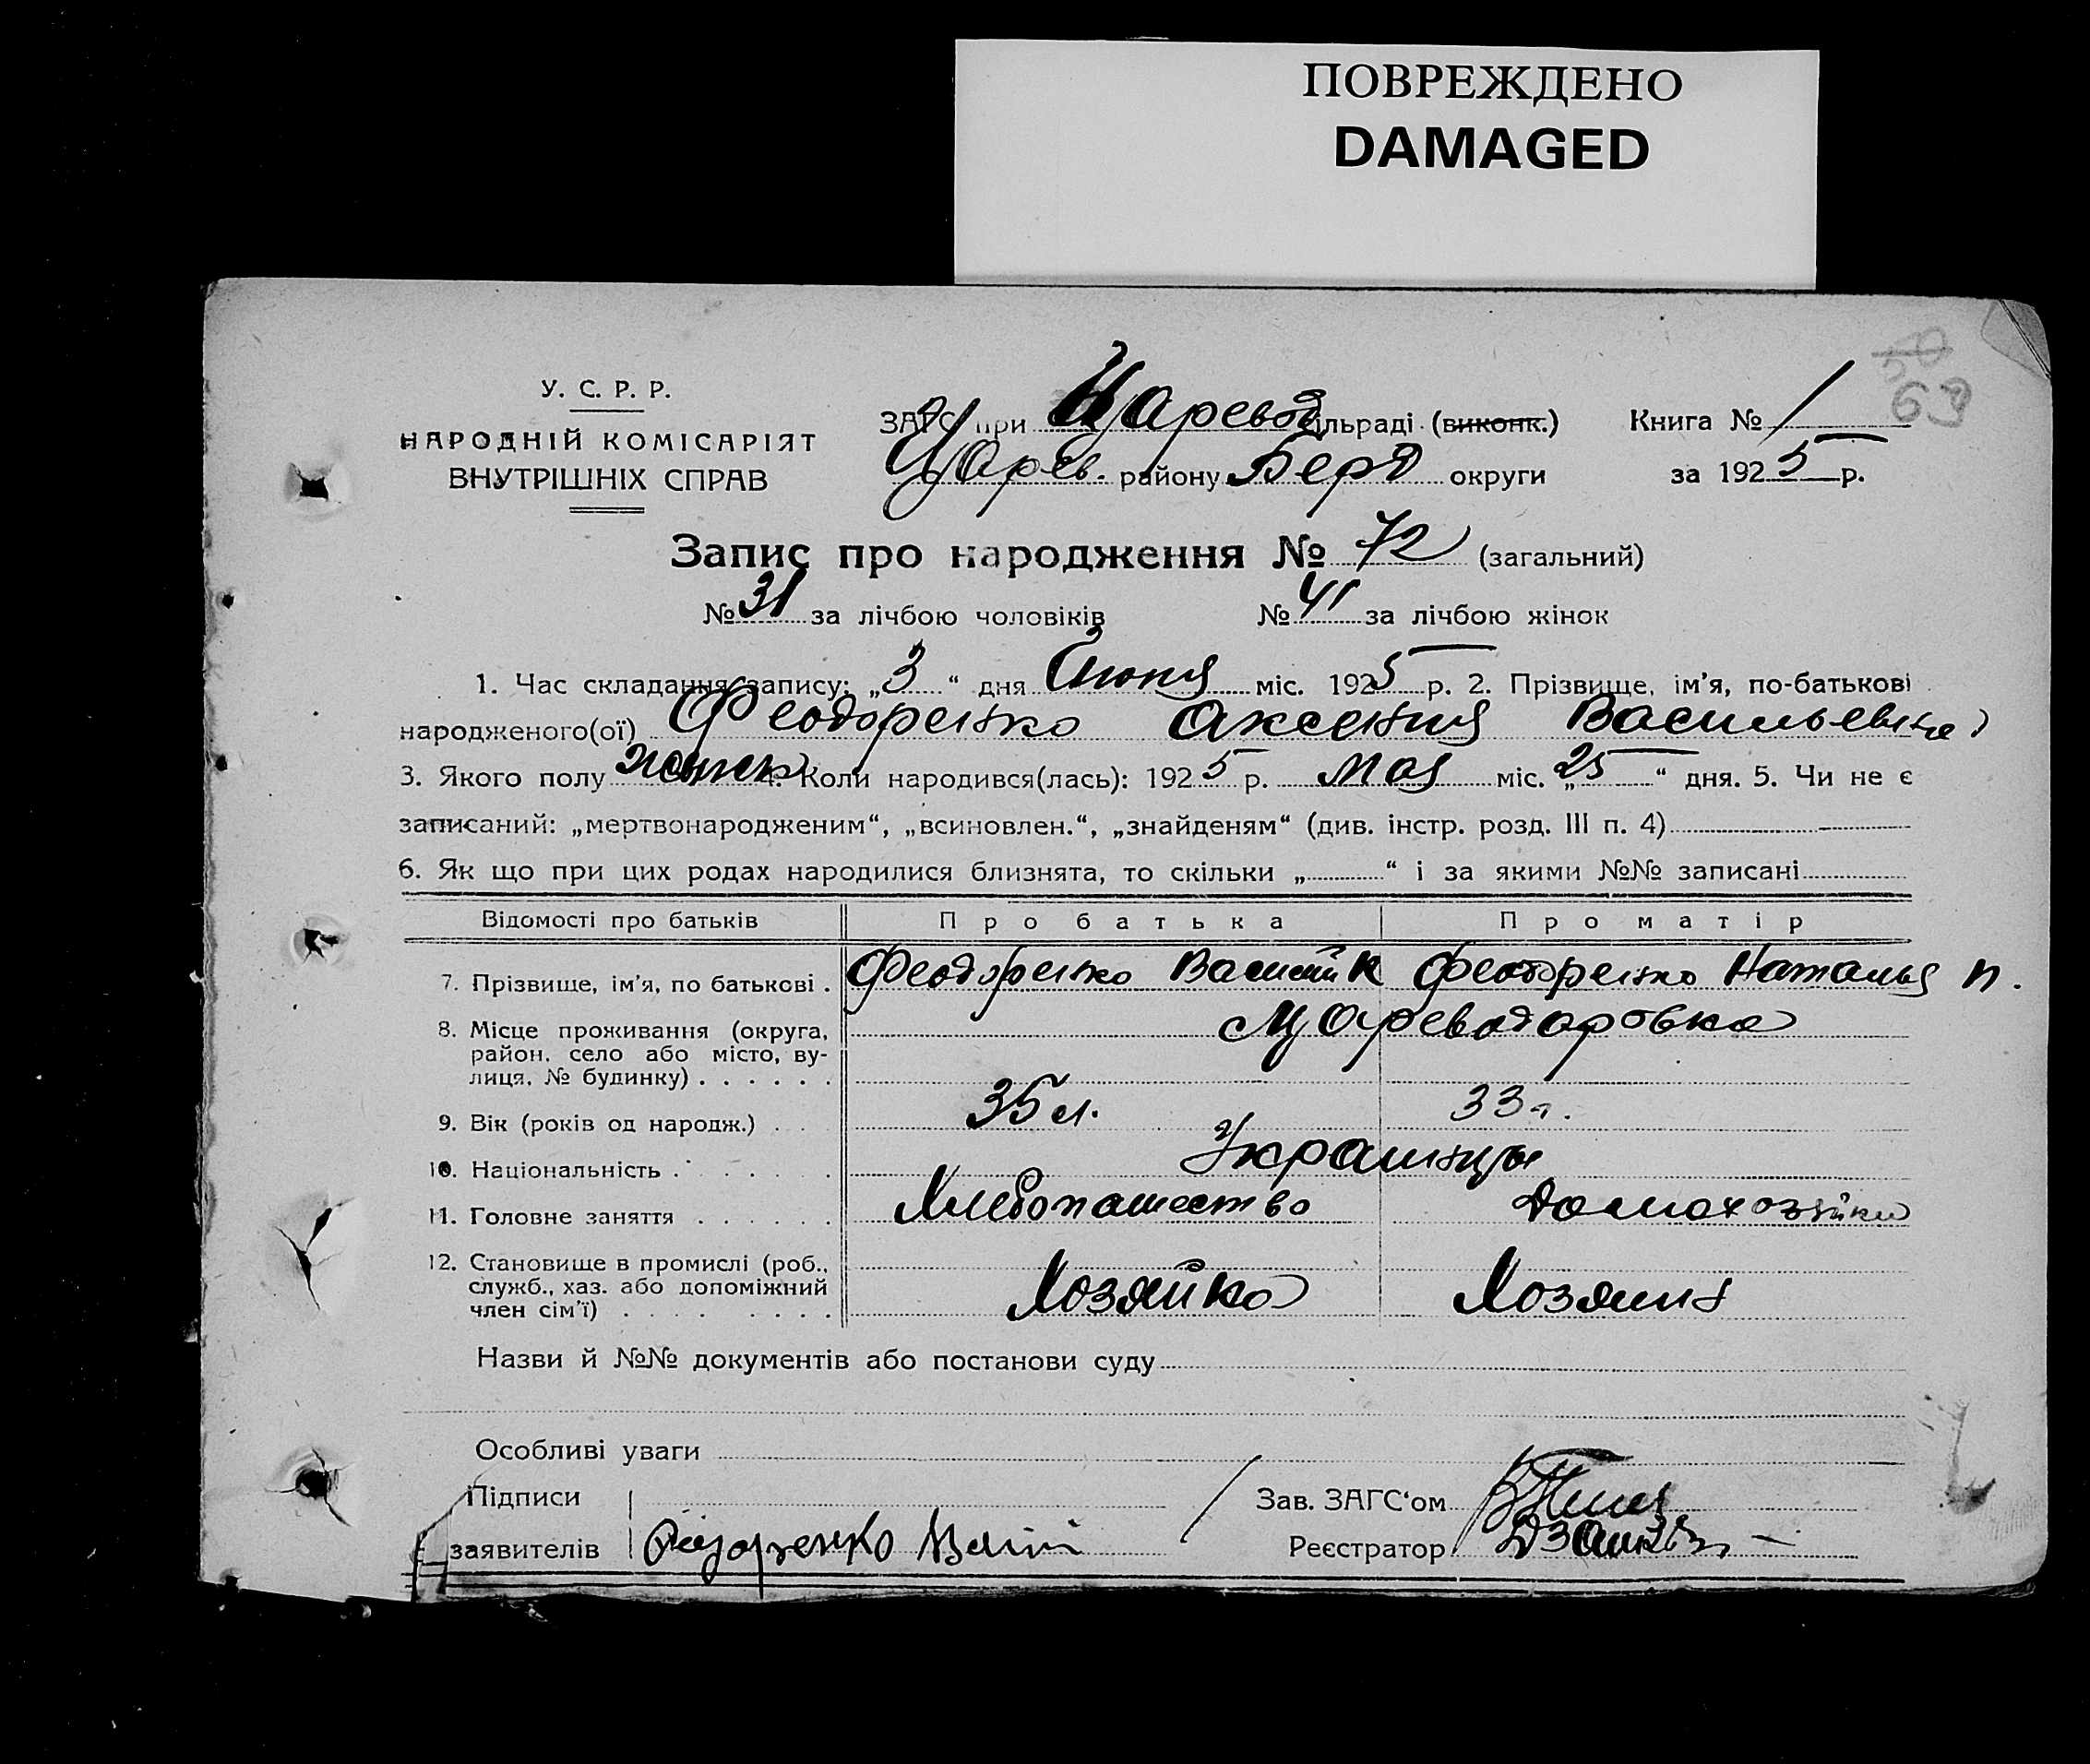 ПОВРЕЖДЕНО
DAMAGED
69
У. С. Р. Р.
НАРОДНІЙ КОМІСАРІЯТ
ВНУТРІШНІХ СПРАВ
ЗАГС при Царевод сільраді (виконк.) Книга № 1
Царев. району Берд округи за 1925 р.
Запис про народження № 72 (загальний)
№ 31 за лічбою чоловіків № 41 за лічбою жінок
1. Час складання запису: „3“ дня Июня міс. 1925 р. 2. Прізвище, ім'я, по-батькові
народженого(ої) Феодоренко Аксения Васильевна
3. Якого полу женск 4. Коли народився(лась): 1925 р. Мая міс. „25“ дня. 5. Чи не є
записаний: „мертвонародженим“, „всиновлен.“, „знайденям“ (див. інстр. розд. III п. 4)
6. Як що при цих родах народилися близнята, то скільки „ “ і за якими №№ записані
Відомості про батьків Про батька Про матір
7. Прізвище, ім'я, по батькові . Феодоренко Василий К Феодоренко Наталья П.
8. Місце проживання (округа, Цареводаровка
район, село або місто, ву-
лиця, № будинку) . . . . . .
9. Вік (років од народж.) . . . 35 л. 33 л.
10. Національність . . . . . . Украинцы
11. Головне заняття . . . . . . Хлебопашество Домохозяйки
12. Становище в промислі (роб.,
служб., хаз. або допоміжний
член сім'ї) . . . . . . . . Хозяйка Хозяин
Назви й №№ документів або постанови суду
Особливі уваги
Підписи Зав. ЗАГС'ом
заявителів Реєстратор